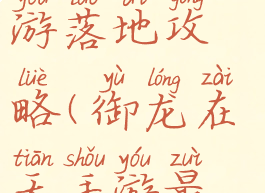 yóu luò dì gōng
游落地攻
lüè yù lóng zài
略(御龙在
tiān shǒu yóu zuì
天手游最